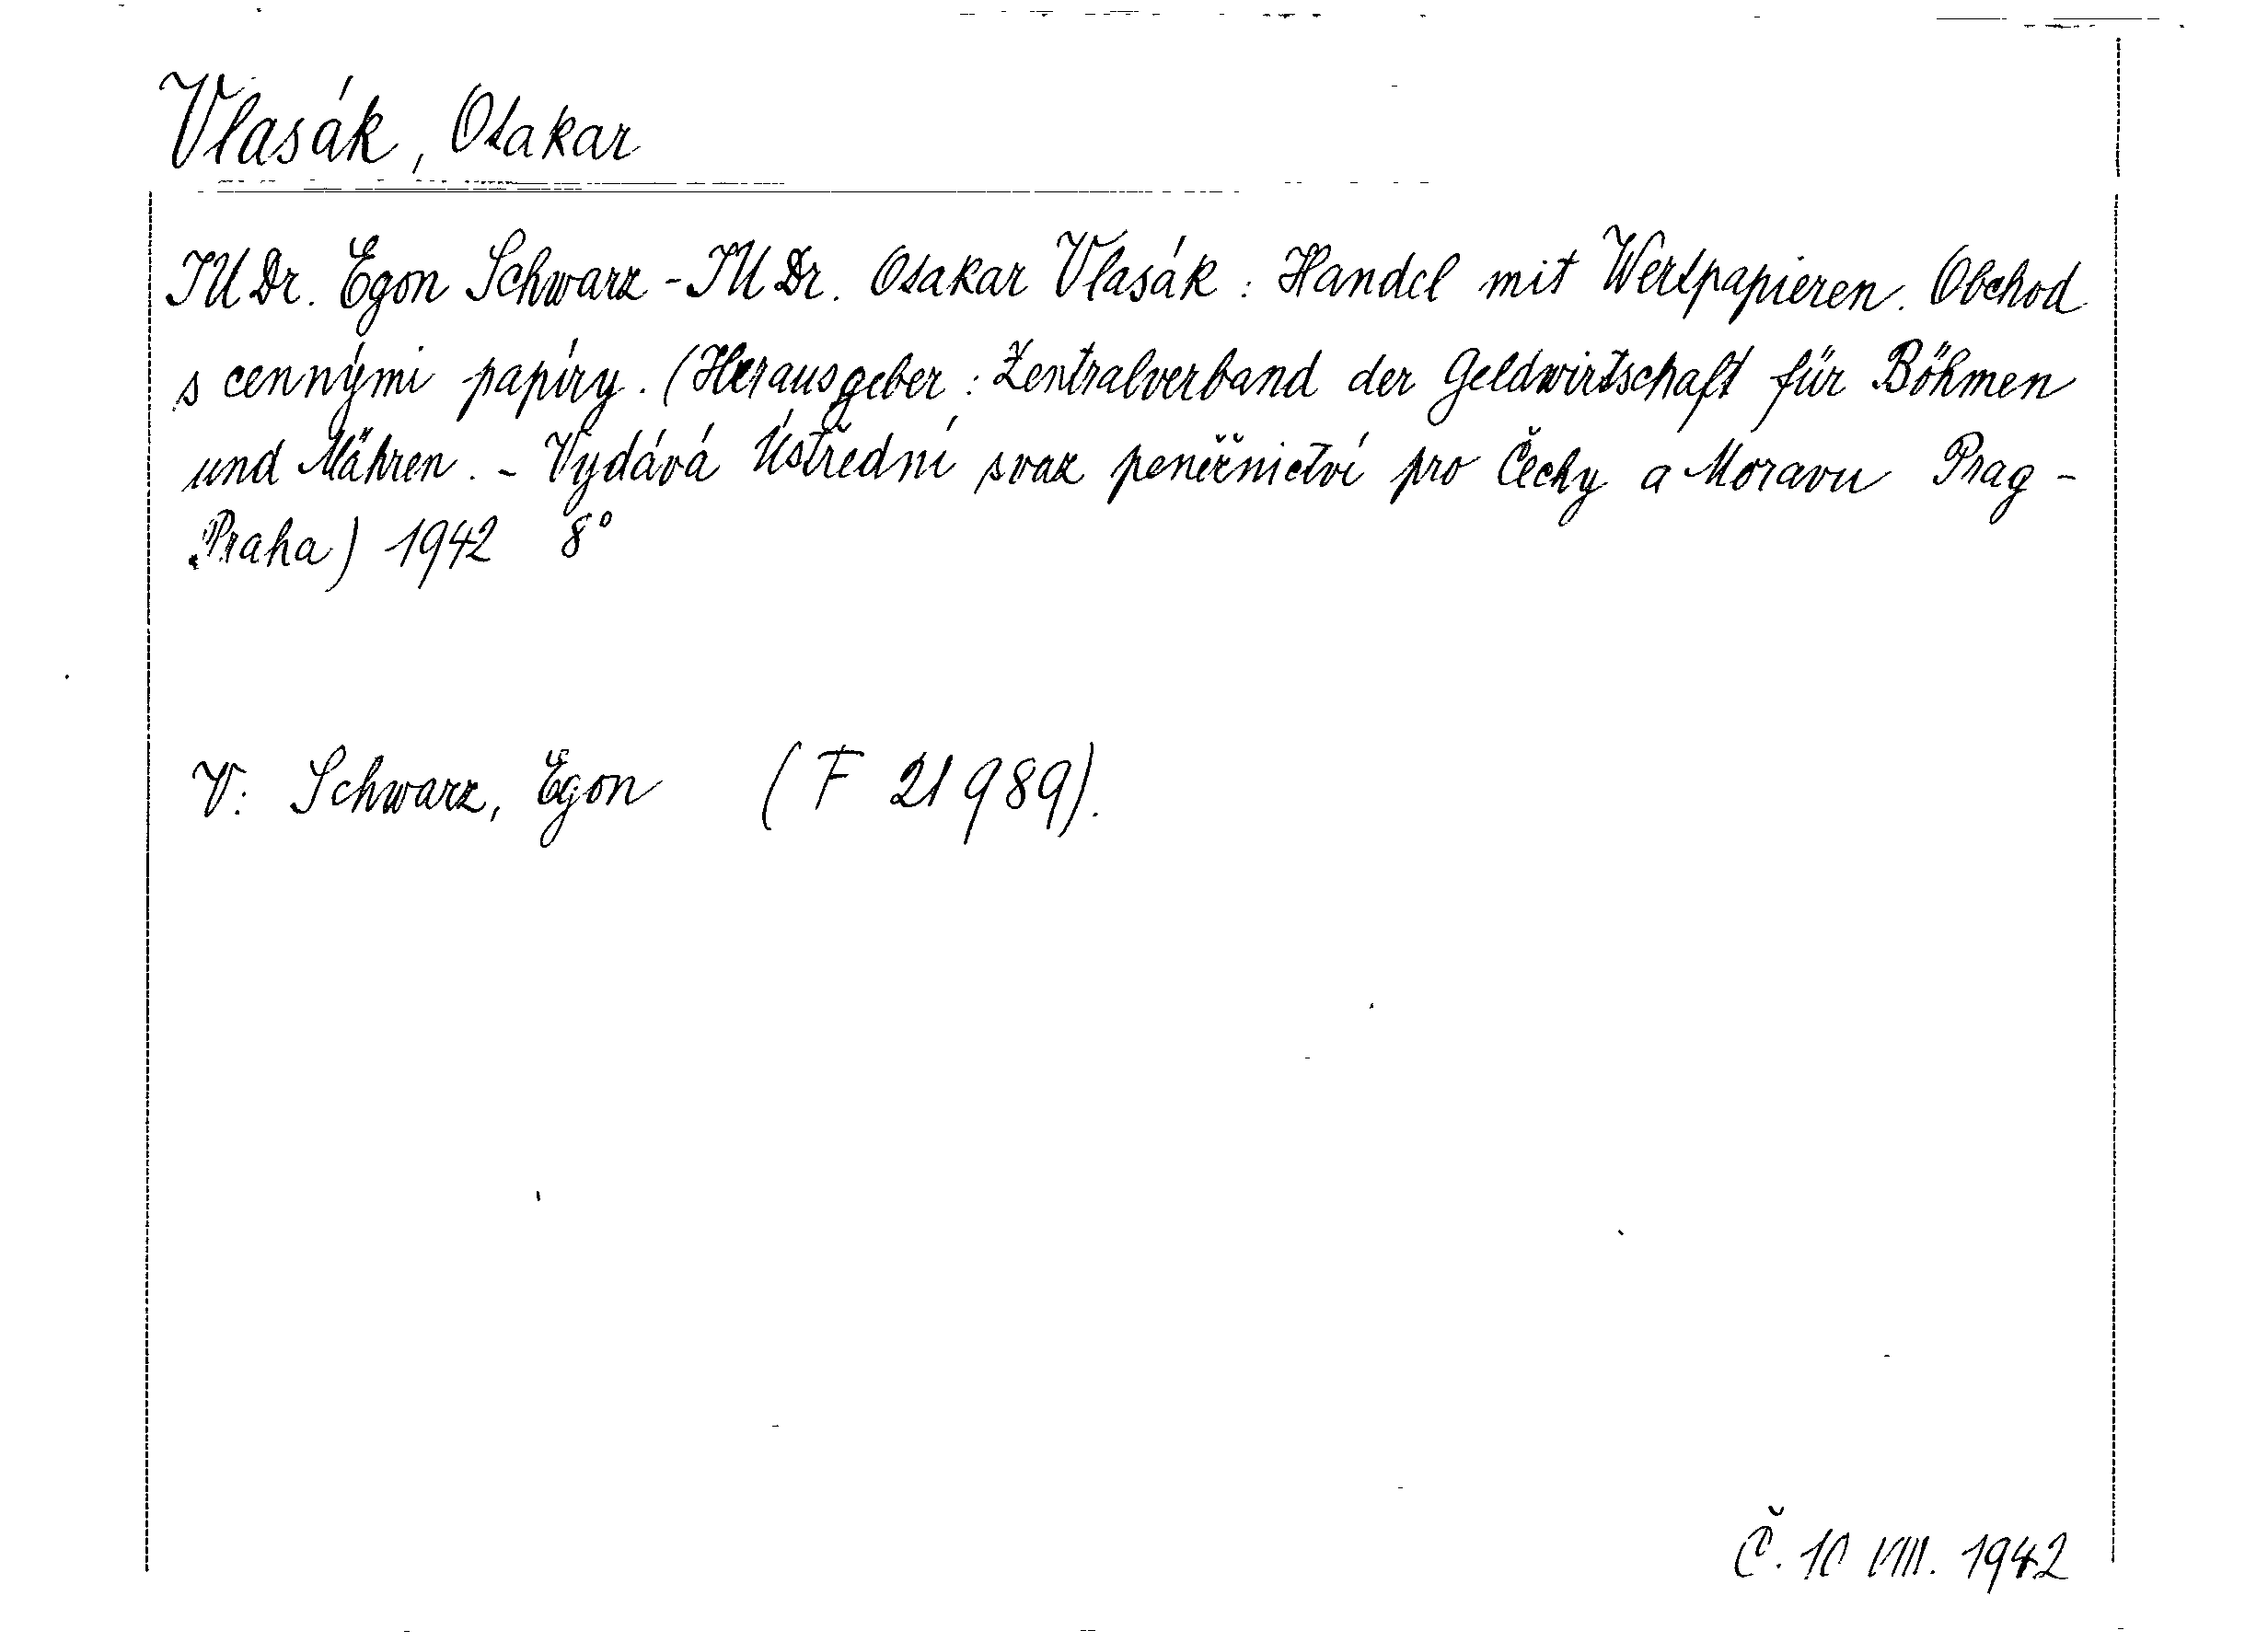 Vlasák, Otakar
JUDr. Egon Schwarz - JUDr. Otakar Vlasák : Handel mit Wertpapieren. Obchod
s cennými papíry. (Herausgeber : Zentralverband der Geldwirtschaft für Böhmen
und Mähren. - Vydává Ústřední svaz peněžnictví pro Čechy a Moravu Prag -
Praha) 1942 8°
V: Schwarz, Egon (F 21989).
Č. 10 VIII. 1942